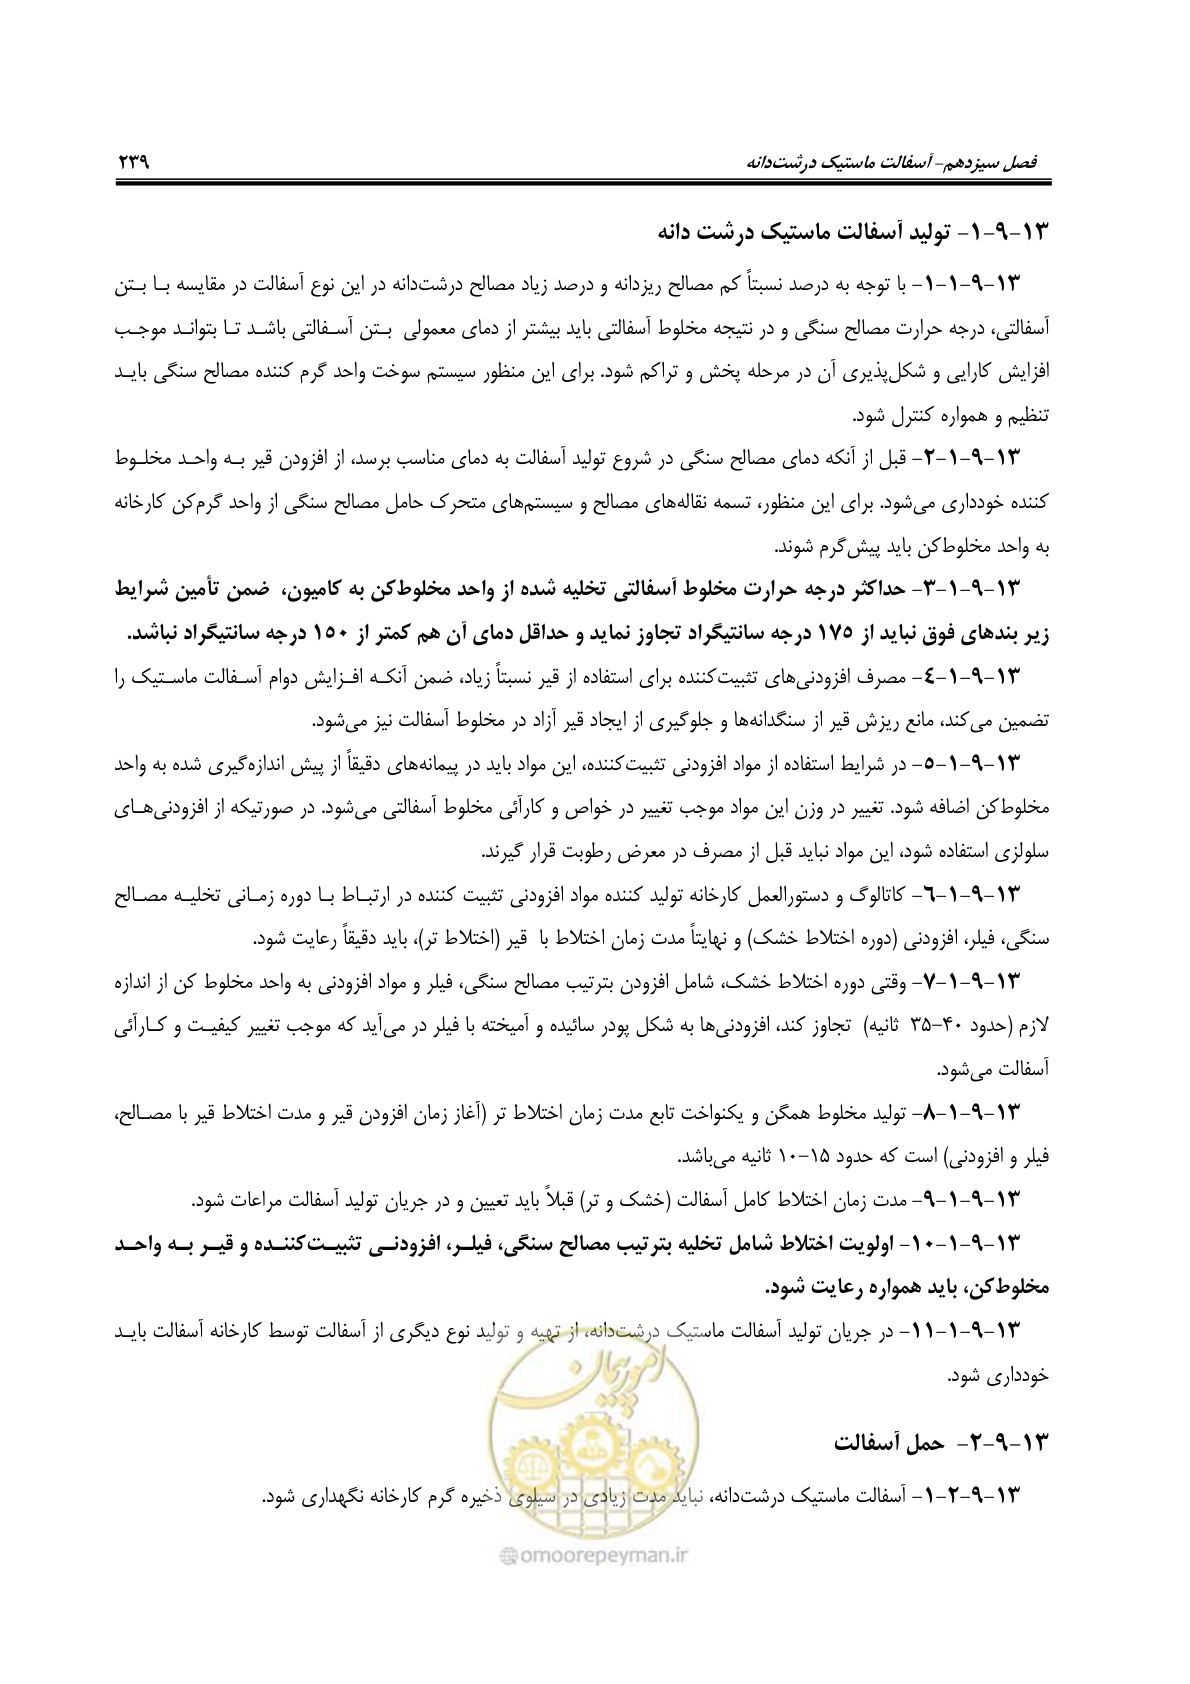 فصل سیزدهم- آسفالت ماستیک درشت‌دانه ۲۳۹
۱۳-۹-۱- تولید آسفالت ماستیک درشت دانه
۱۳-۹-۱-۱- با توجه به درصد نسبتاً کم مصالح ریزدانه و درصد زیاد مصالح درشت‌دانه در این نوع آسفالت در مقایسه بـا بـتن
آسفالتی، درجه حرارت مصالح سنگی و در نتیجه مخلوط آسفالتی باید بیشتر از دمای معمولی بـتن آسـفالتی باشـد تـا بتوانـد موجـب
افزایش کارایی و شکل‌پذیری آن در مرحله پخش و تراکم شود. برای این منظور سیستم سوخت واحد گرم کننده مصالح سنگی بایـد
تنظیم و همواره کنترل شود.
۱۳-۹-۱-۲- قبل از آنکه دمای مصالح سنگی در شروع تولید آسفالت به دمای مناسب برسد، از افزودن قیر بـه واحـد مخلـوط
کننده خودداری می‌شود. برای این منظور، تسمه نقاله‌های مصالح و سیستم‌های متحرک حامل مصالح سنگی از واحد گرم‌کن کارخانه
به واحد مخلوط‌کن باید پیش‌گرم شوند.
۱۳-۹-۱-۳- حداکثر درجه حرارت مخلوط آسفالتی تخلیه شده از واحد مخلوط‌کن به کامیون، ضمن تأمین شرایط
زیر بندهای فوق نباید از ۱۷۵ درجه سانتیگراد تجاوز نماید و حداقل دمای آن هم کمتر از ۱۵۰ درجه سانتیگراد نباشد.
۱۳-۹-۱-٤- مصرف افزودنی‌های تثبیت‌کننده برای استفاده از قیر نسبتاً زیاد، ضمن آنکـه افـزایش دوام آسـفالت ماسـتیک را
تضمین می‌کند، مانع ریزش قیر از سنگدانه‌ها و جلوگیری از ایجاد قیر آزاد در مخلوط آسفالت نیز می‌شود.
۱۳-۹-۱-۵- در شرایط استفاده از مواد افزودنی تثبیت‌کننده، این مواد باید در پیمانه‌های دقیقاً از پیش اندازه‌گیری شده به واحد
مخلوط‌کن اضافه شود. تغییر در وزن این مواد موجب تغییر در خواص و کارآئی مخلوط آسفالتی می‌شود. در صورتیکه از افزودنی‌هـای
سلولزی استفاده شود، این مواد نباید قبل از مصرف در معرض رطوبت قرار گیرند.
۱۳-۹-۱-٦- کاتالوگ و دستورالعمل کارخانه تولید کننده مواد افزودنی تثبیت کننده در ارتبـاط بـا دوره زمـانی تخلیـه مصـالح
سنگی، فیلر، افزودنی (دوره اختلاط خشک) و نهایتاً مدت زمان اختلاط با قیر (اختلاط تر)، باید دقیقاً رعایت شود.
۱۳-۹-۱-۷- وقتی دوره اختلاط خشک، شامل افزودن بترتیب مصالح سنگی، فیلر و مواد افزودنی به واحد مخلوط کن از اندازه
لازم (حدود ۴۰-۳۵ ثانیه) تجاوز کند، افزودنی‌ها به شکل پودر سائیده و آمیخته با فیلر در می‌آید که موجب تغییر کیفیـت و کـارآئی
آسفالت می‌شود.
۱۳-۹-۱-۸- تولید مخلوط همگن و یکنواخت تابع مدت زمان اختلاط تر (آغاز زمان افزودن قیر و مدت اختلاط قیر با مصـالح،
فیلر و افزودنی) است که حدود ۱۵-۱۰ ثانیه می‌باشد.
۱۳-۹-۱-۹- مدت زمان اختلاط کامل آسفالت (خشک و تر) قبلاً باید تعیین و در جریان تولید آسفالت مراعات شود.
۱۳-۹-۱-۱۰- اولویت اختلاط شامل تخلیه بترتیب مصالح سنگی، فیلـر، افزودنـی تثبیـت‌کننـده و قیـر بـه واحـد
مخلوط‌کن، باید همواره رعایت شود.
۱۳-۹-۱-۱۱- در جریان تولید آسفالت ماستیک درشت‌دانه، از تهیه و تولید نوع دیگری از آسفالت توسط کارخانه آسفالت بایـد
خودداری شود.
امور پیمان
۱۳-۹-۲- حمل آسفالت
۱۳-۹-۲-۱- آسفالت ماستیک درشت‌دانه، نباید مدت زیادی در سیلوی ذخیره گرم کارخانه نگهداری شود.
@omoorepeyman.ir